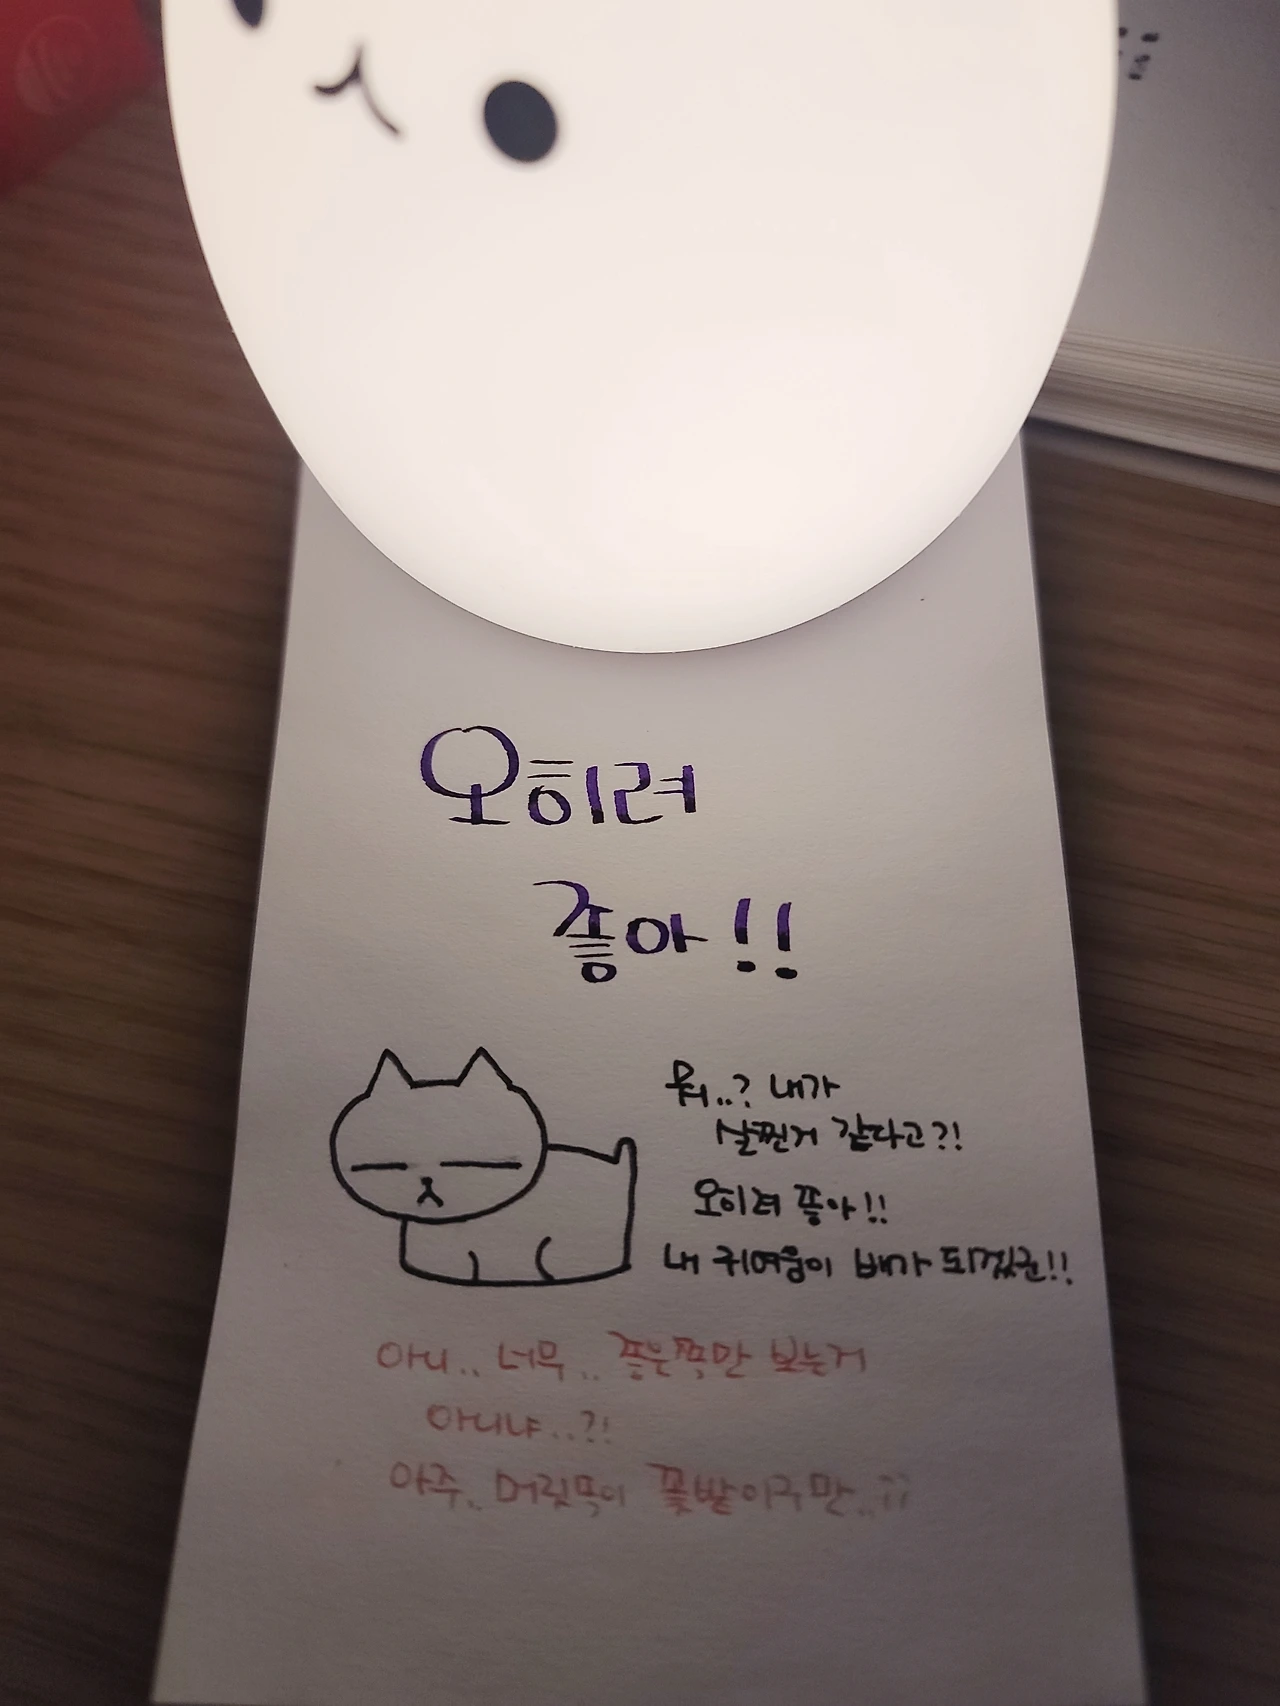 오히려
좋아!!
뭐..? 내가
살찐거 같다고?!
오히려 좋아!!
내 귀여움이 배가 되겠군!!
아니.. 너무.. 좋은쪽만 보는거
아니냐..?!
아주.. 머릿속이 꽃밭이구만..;;